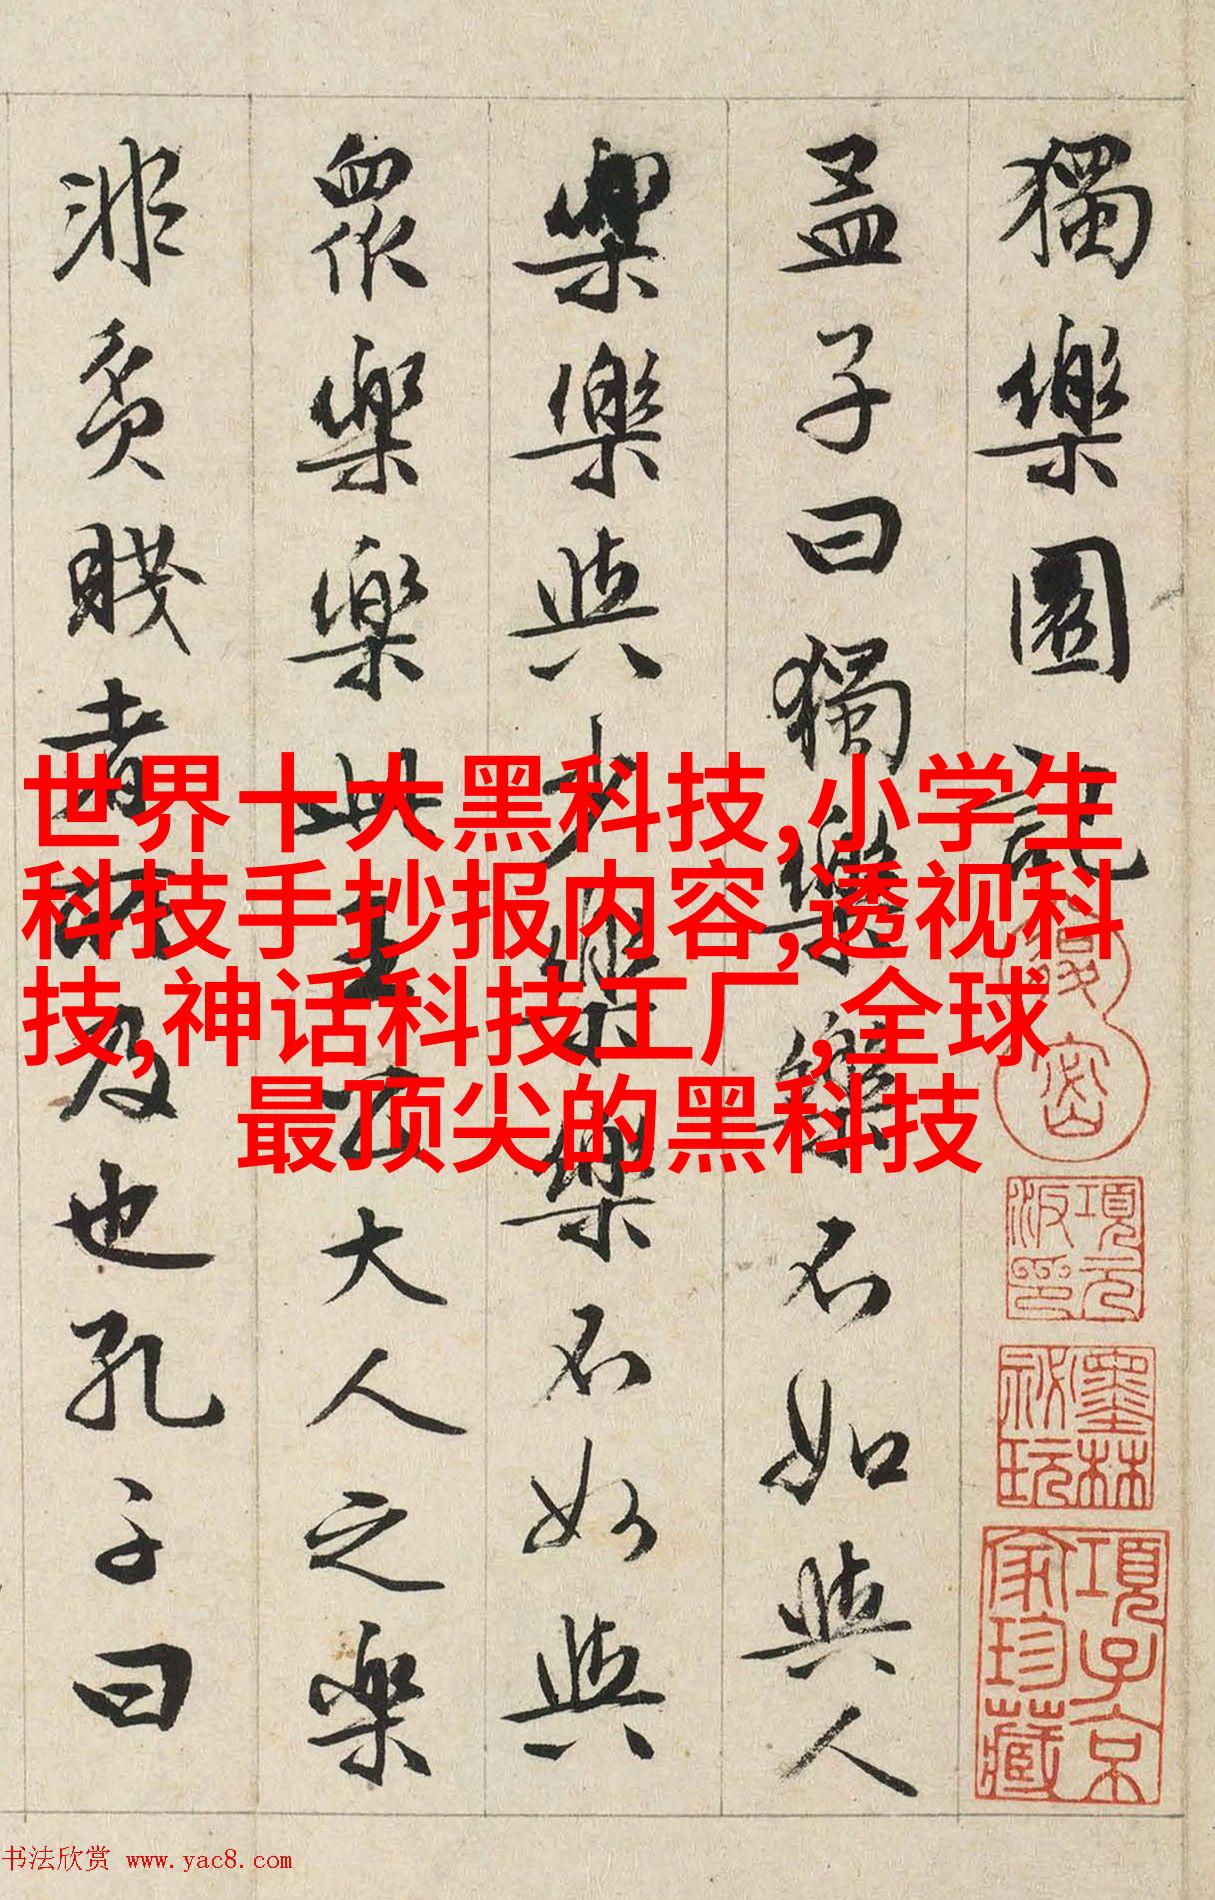 獨樂園記
孟子曰獨樂樂不如與人
樂樂與少樂樂不如與
眾樂樂此王公大人之樂
非貧賤者所及也孔子曰
世界十大黑科技,小学生
科技手抄报内容,透视科
技,神话科技工厂,全球
最顶尖的黑科技
項元
汴印
墨林
祕玩
項子京
家珍藏
书法欣赏 www.yac8.com